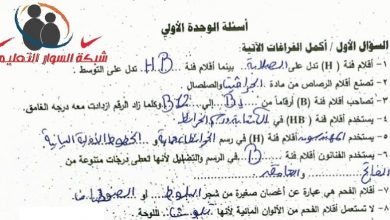 شبكة السوار التعليمية
أسئلة الوحدة الأولي
السؤال الأول / أكمل الفراغات الآتية:
١- أقلام فئة (H) تدل على الصلابة بينما أقلام فئة HB تدل على التوسط.
٢- تصنع أقلام الرصاص من مادة الجرافيت والصلصال
٣- تصاحب أقلام فئة (B) أرقاماً من وكلما زاد الرقم ازدادت معه درجة الغامق.
٤- يستخدم أقلام فئة (HB) في الكتابة ورسم الخرائط
٥- يستخدم المهندسون أقلام فئة (H) في رسم و الخطوط البيانية
٦- يستخدم الفنانون أقلام فئة B في الرسم والتظليل لأنها تعطى درجات متنوعة من
الفاتح والغامق
٧- أقلام الفحم هي عبارة عن أغصان صغيرة من شجر البلوط أو الصفصاف
٨- لا تستعمل أقلام الفحم من الألوان المائية لأنها للوحة.